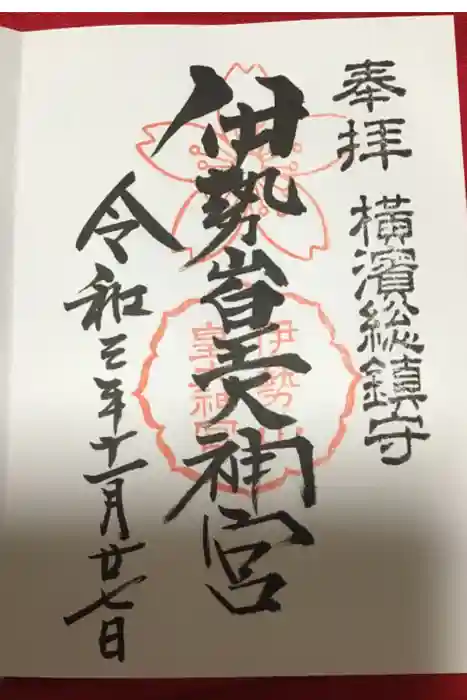 奉拝 横濱総鎮守
伊勢山皇大神宮
令和三年十一月廿七日
伊勢山
皇大神宮